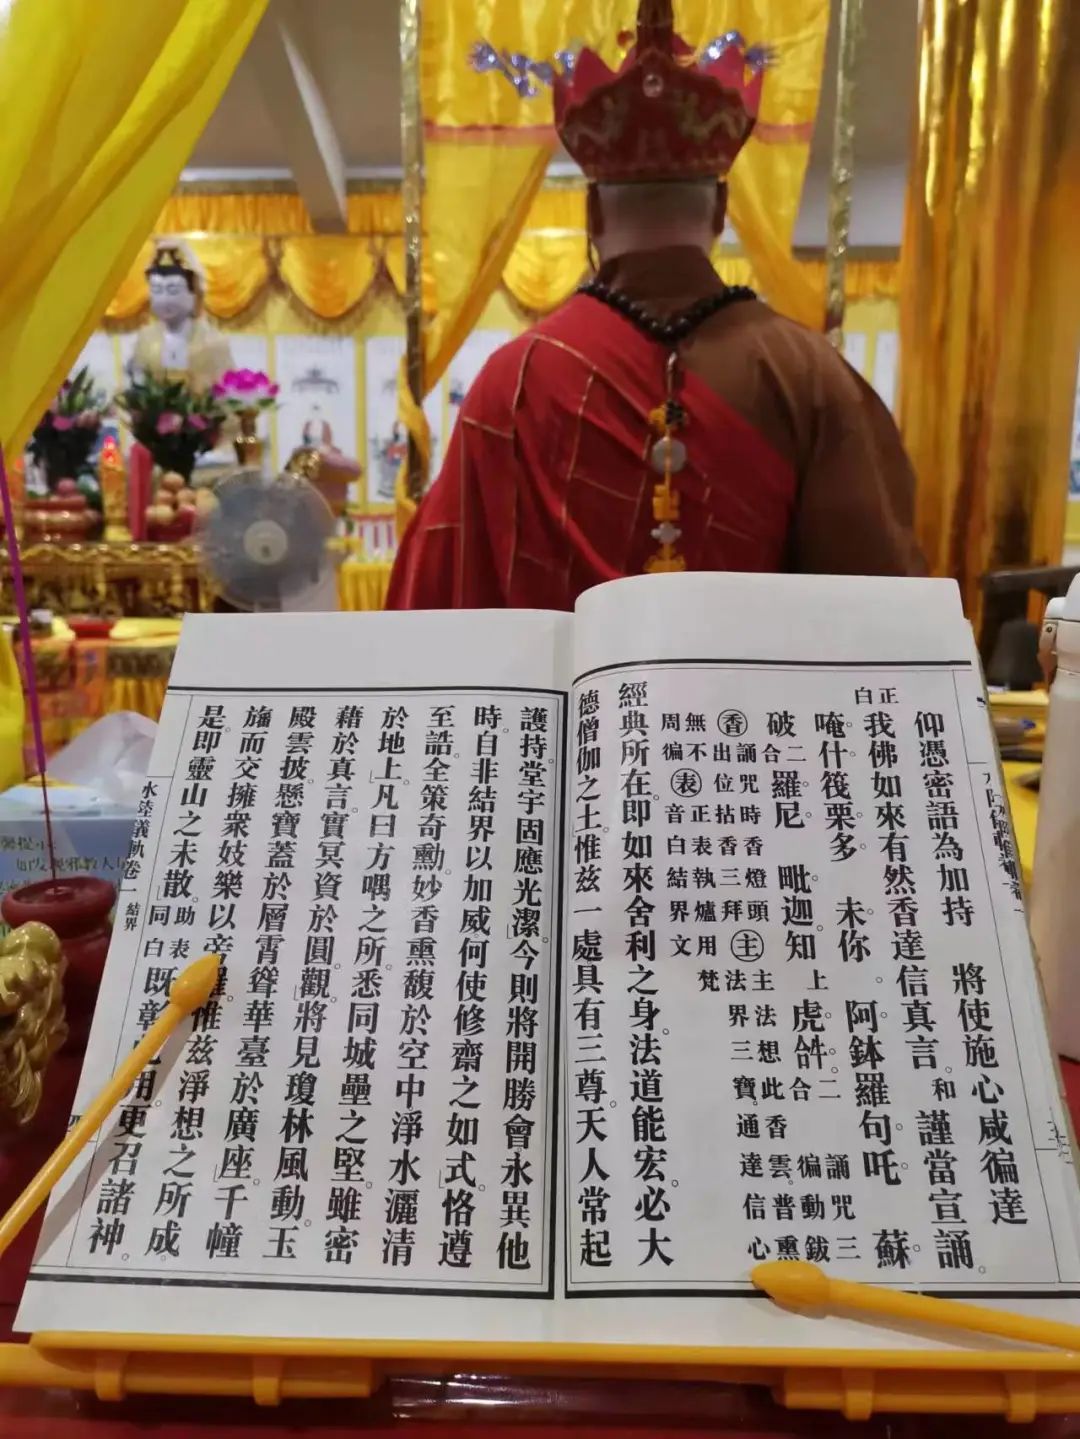 仰憑密語為加持　將使施心咸徧達
正白　我佛如來有然香達信真言。和　謹當宣誦。
唵。什筏栗多。　未你。　阿鉢羅句。吒　蘇。
破二合羅尼。　毗迦。知上　虎𤙖。二合　誦咒三徧動鈸
香　誦咒時香燈頭出位拈香三拜　主　主法想此香雲。普熏法界三寶。通達信心
無不周徧　表　正表執爐用梵音白結界文
經典所在。即如來舍利之身。法道能宏。必大
德僧伽之土。惟茲一處。具有三尊。天人常起
護持。堂宇固應光潔。今則將開勝會。永異他
時。自非結界以加威。何使修齋之如式。恪遵
至誥。全策奇勳。妙香熏馥於空中。淨水灑清
於地上。凡曰方喁之所。悉同城壘之堅。雖密
藉於真言。實冥資於圓觀。將見瓊林風動。玉
殿雲披。懸寶蓋於層霄。聳華臺於廣座。千幢
旛而交擁。衆妓樂以 惟茲淨想之所成。
是即靈山之未散。助表同白　既彰 更召諸神。
水陸議軌卷一　結界